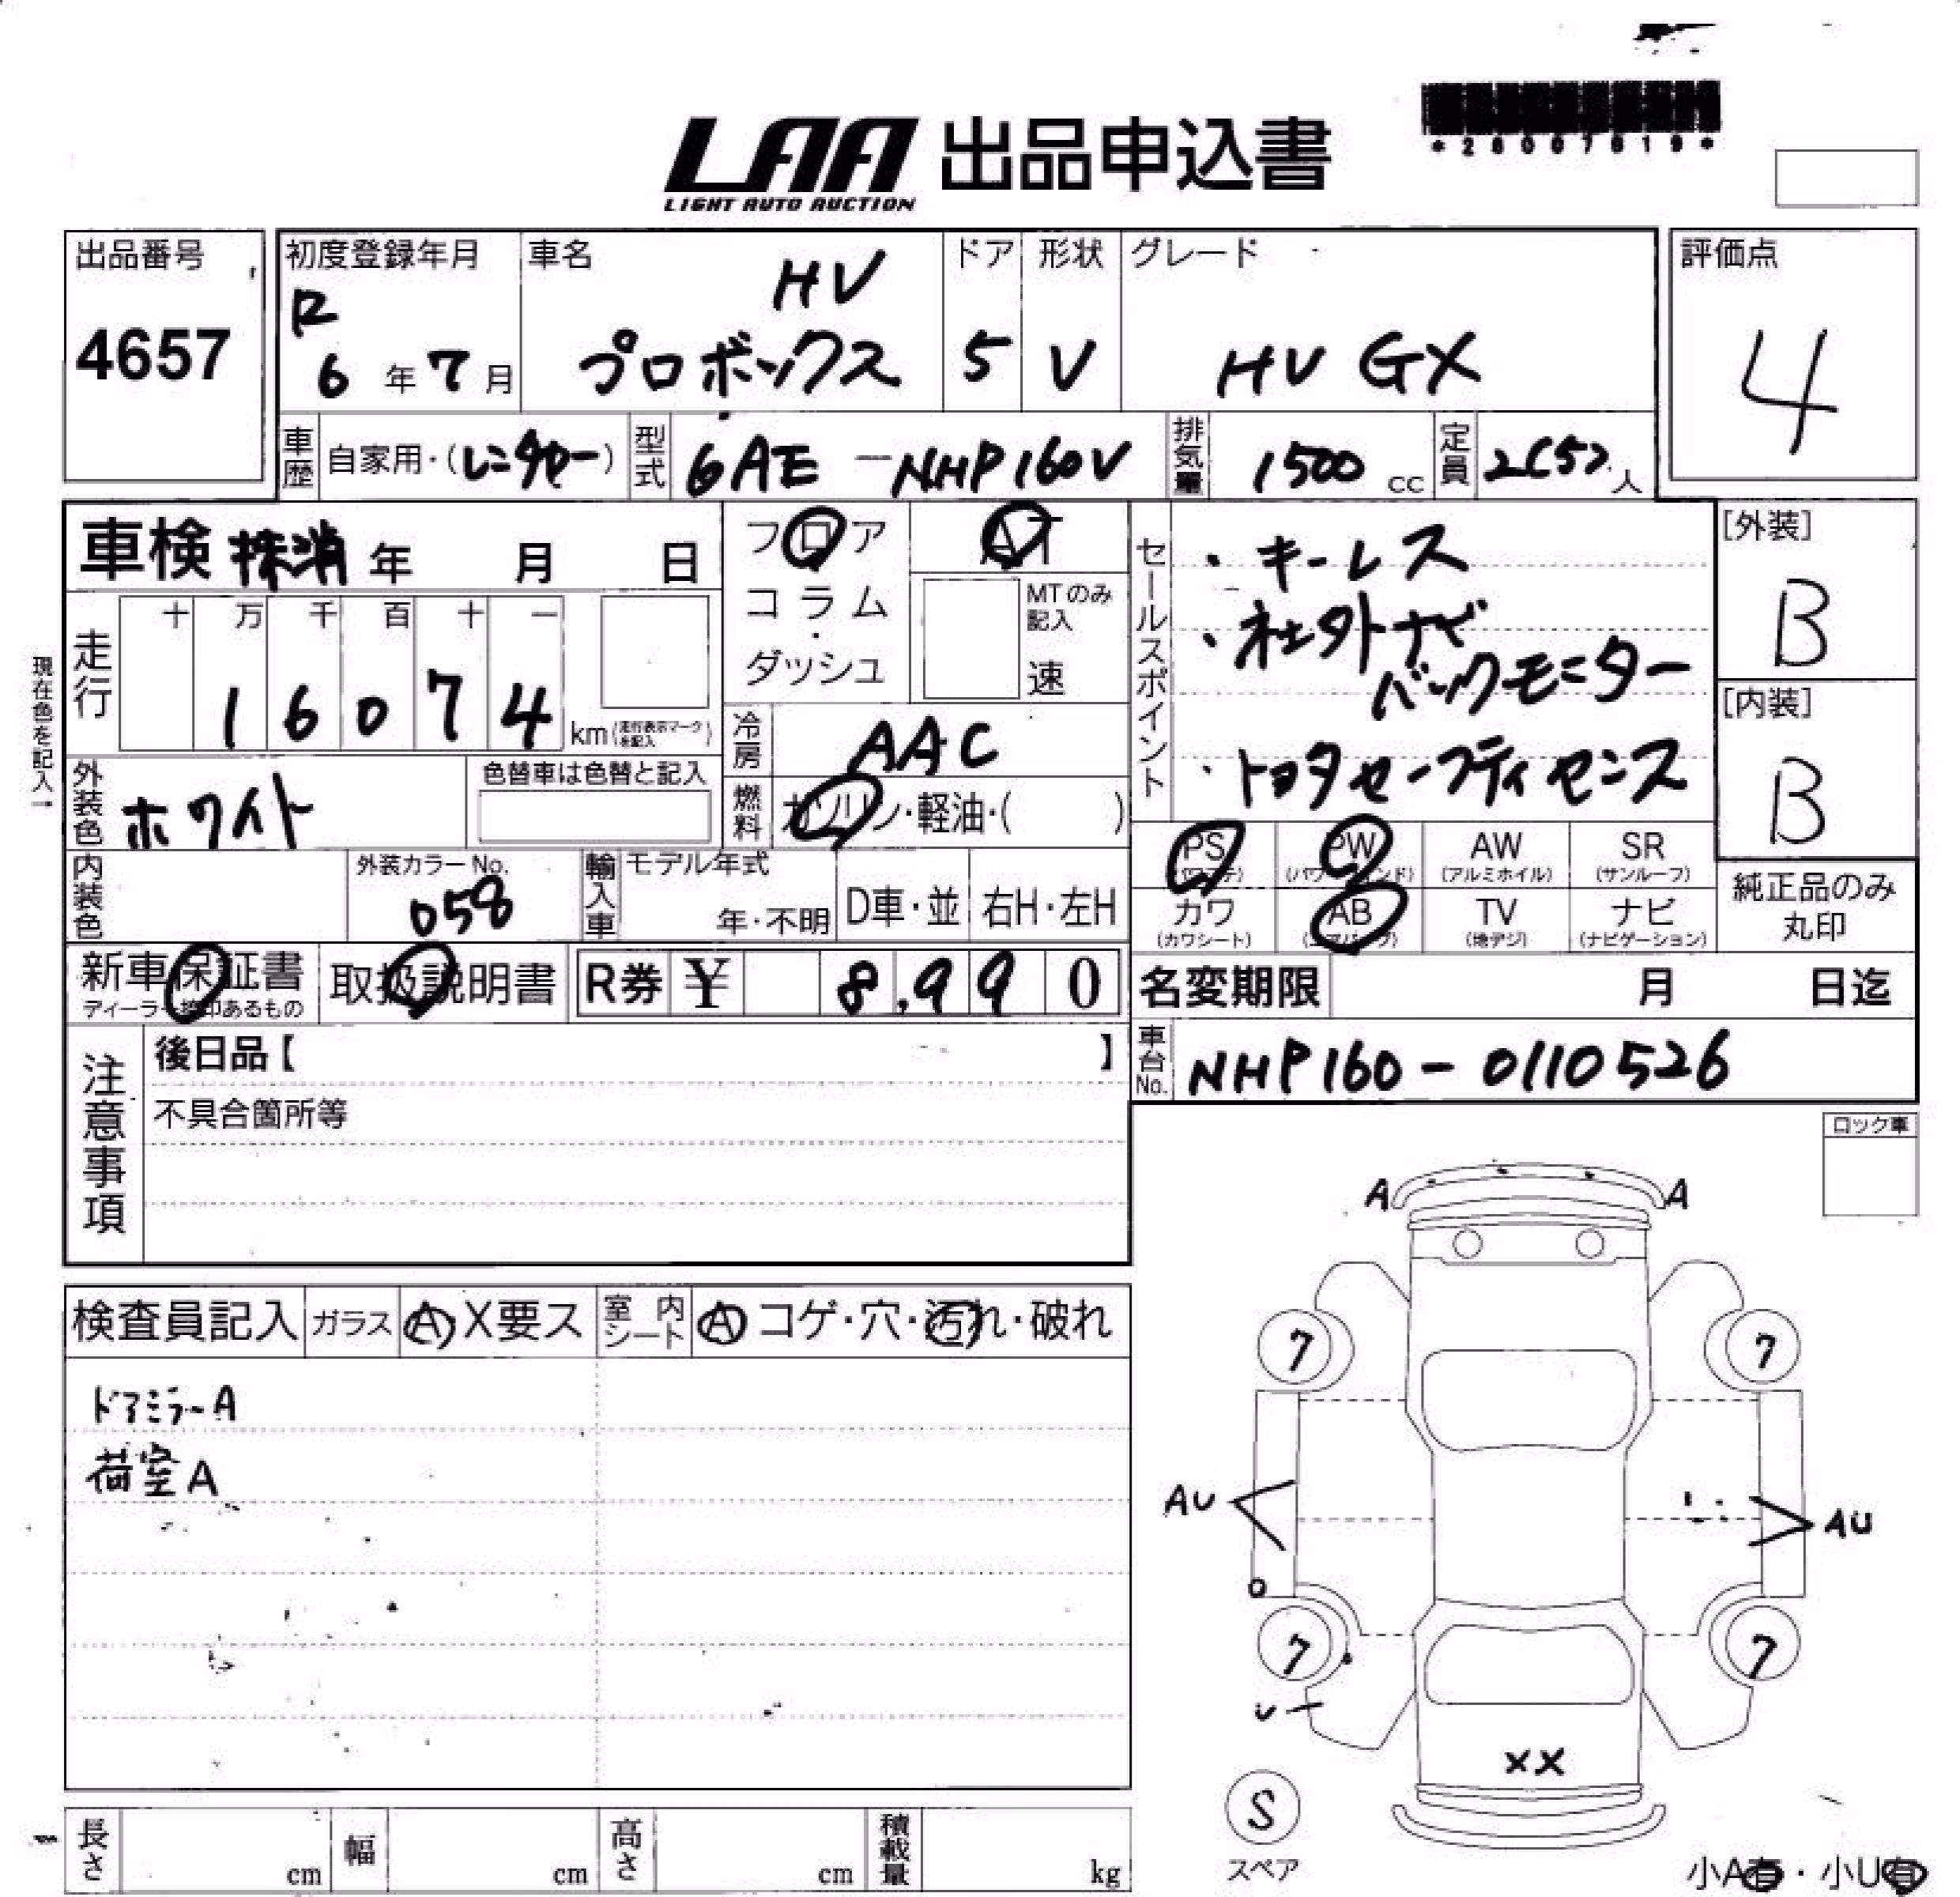 LAA 出品申込書
LIGHT AUTO AUCTION
*28007619*
出品番号
4657
初度登録年月
R
6年7月
車名
HV
プロボックス
ドア
5
形状
V
グレード
HV GX
評価点
4
車歴
自家用・(レンタカー)
型式
6AE-NHP160V
排気量
1500cc
定員
2(5)人
車検 抹消 年 月 日
フロア
コラム
・
ダッシュ
AT
MTのみ記入
速
セールスポイント
・キーレス
・社外ナビ
バックモニター
・トヨタセーフティセンス
[外装]
B
[内装]
B
現在色を記入→
走行
十 万 千 百 十 一
1 6 0 7 4
km(走行表示マークを記入)
冷房
AAC
外装色
ホワイト
色替車は色替と記入
燃料
ガソリン・軽油・( )
PS
(パワステ)
PW
(パワーウインド)
AW
(アルミホイル)
SR
(サンルーフ)
内装色
外装カラーNo.
058
輸入車
モデル年式
年・不明
D車・並
右H・左H
カワ
(カワシート)
AB
(エアバッグ)
TV
(地デジ)
ナビ
(ナビゲーション)
純正品のみ
丸印
新車保証書
ディーラー捺印あるもの
取扱説明書
R券 ¥ 8,990
名変期限 月 日迄
車台No.
NHP160-0110526
注意事項
後日品【 】
不具合箇所等
ロック車
検査員記入
ガラス
A X要ス
室内シート
A コゲ・穴・汚れ・破れ
ドアミラーA
荷室A
A A
7 7
AU AU
7 7
U
XX
S
スペア
長さ cm
幅 cm
高さ cm
積載量 kg
小A有・小U有